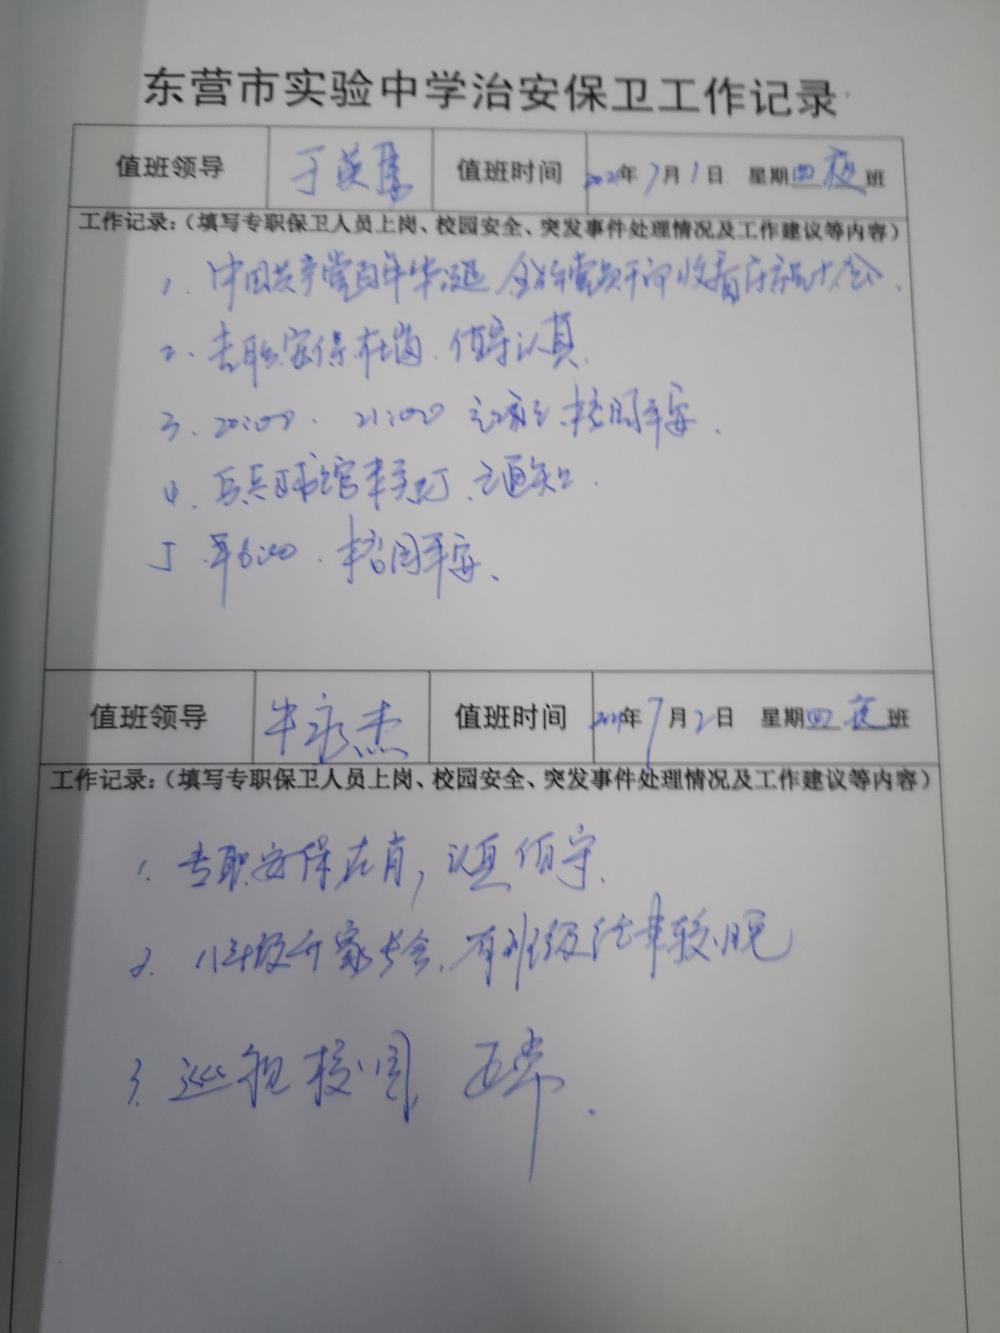 东营市实验中学治安保卫工作记录
值班领导 于英 值班时间 2021年7月1日 星期四夜班
工作记录：（填写专职保卫人员上岗、校园安全、突发事件处理情况及工作建议等内容）
1. 中国共产党百年华诞 全体党员干部收看庆祝大会.
2. 专职安保在岗. 值守认真.
3. 20:00. 21:00 校园平安.
4. 乒乓球馆未关灯. 已通知.
5. 早6:00. 校园平安.
值班领导 牛永杰 值班时间 2021年7月2日 星期四夜班
工作记录：（填写专职保卫人员上岗、校园安全、突发事件处理情况及工作建议等内容）
1. 专职安保在岗, 认真值守.
2. 八年级开家长会. 有班级结束较晚
3. 巡视校园, 正常.